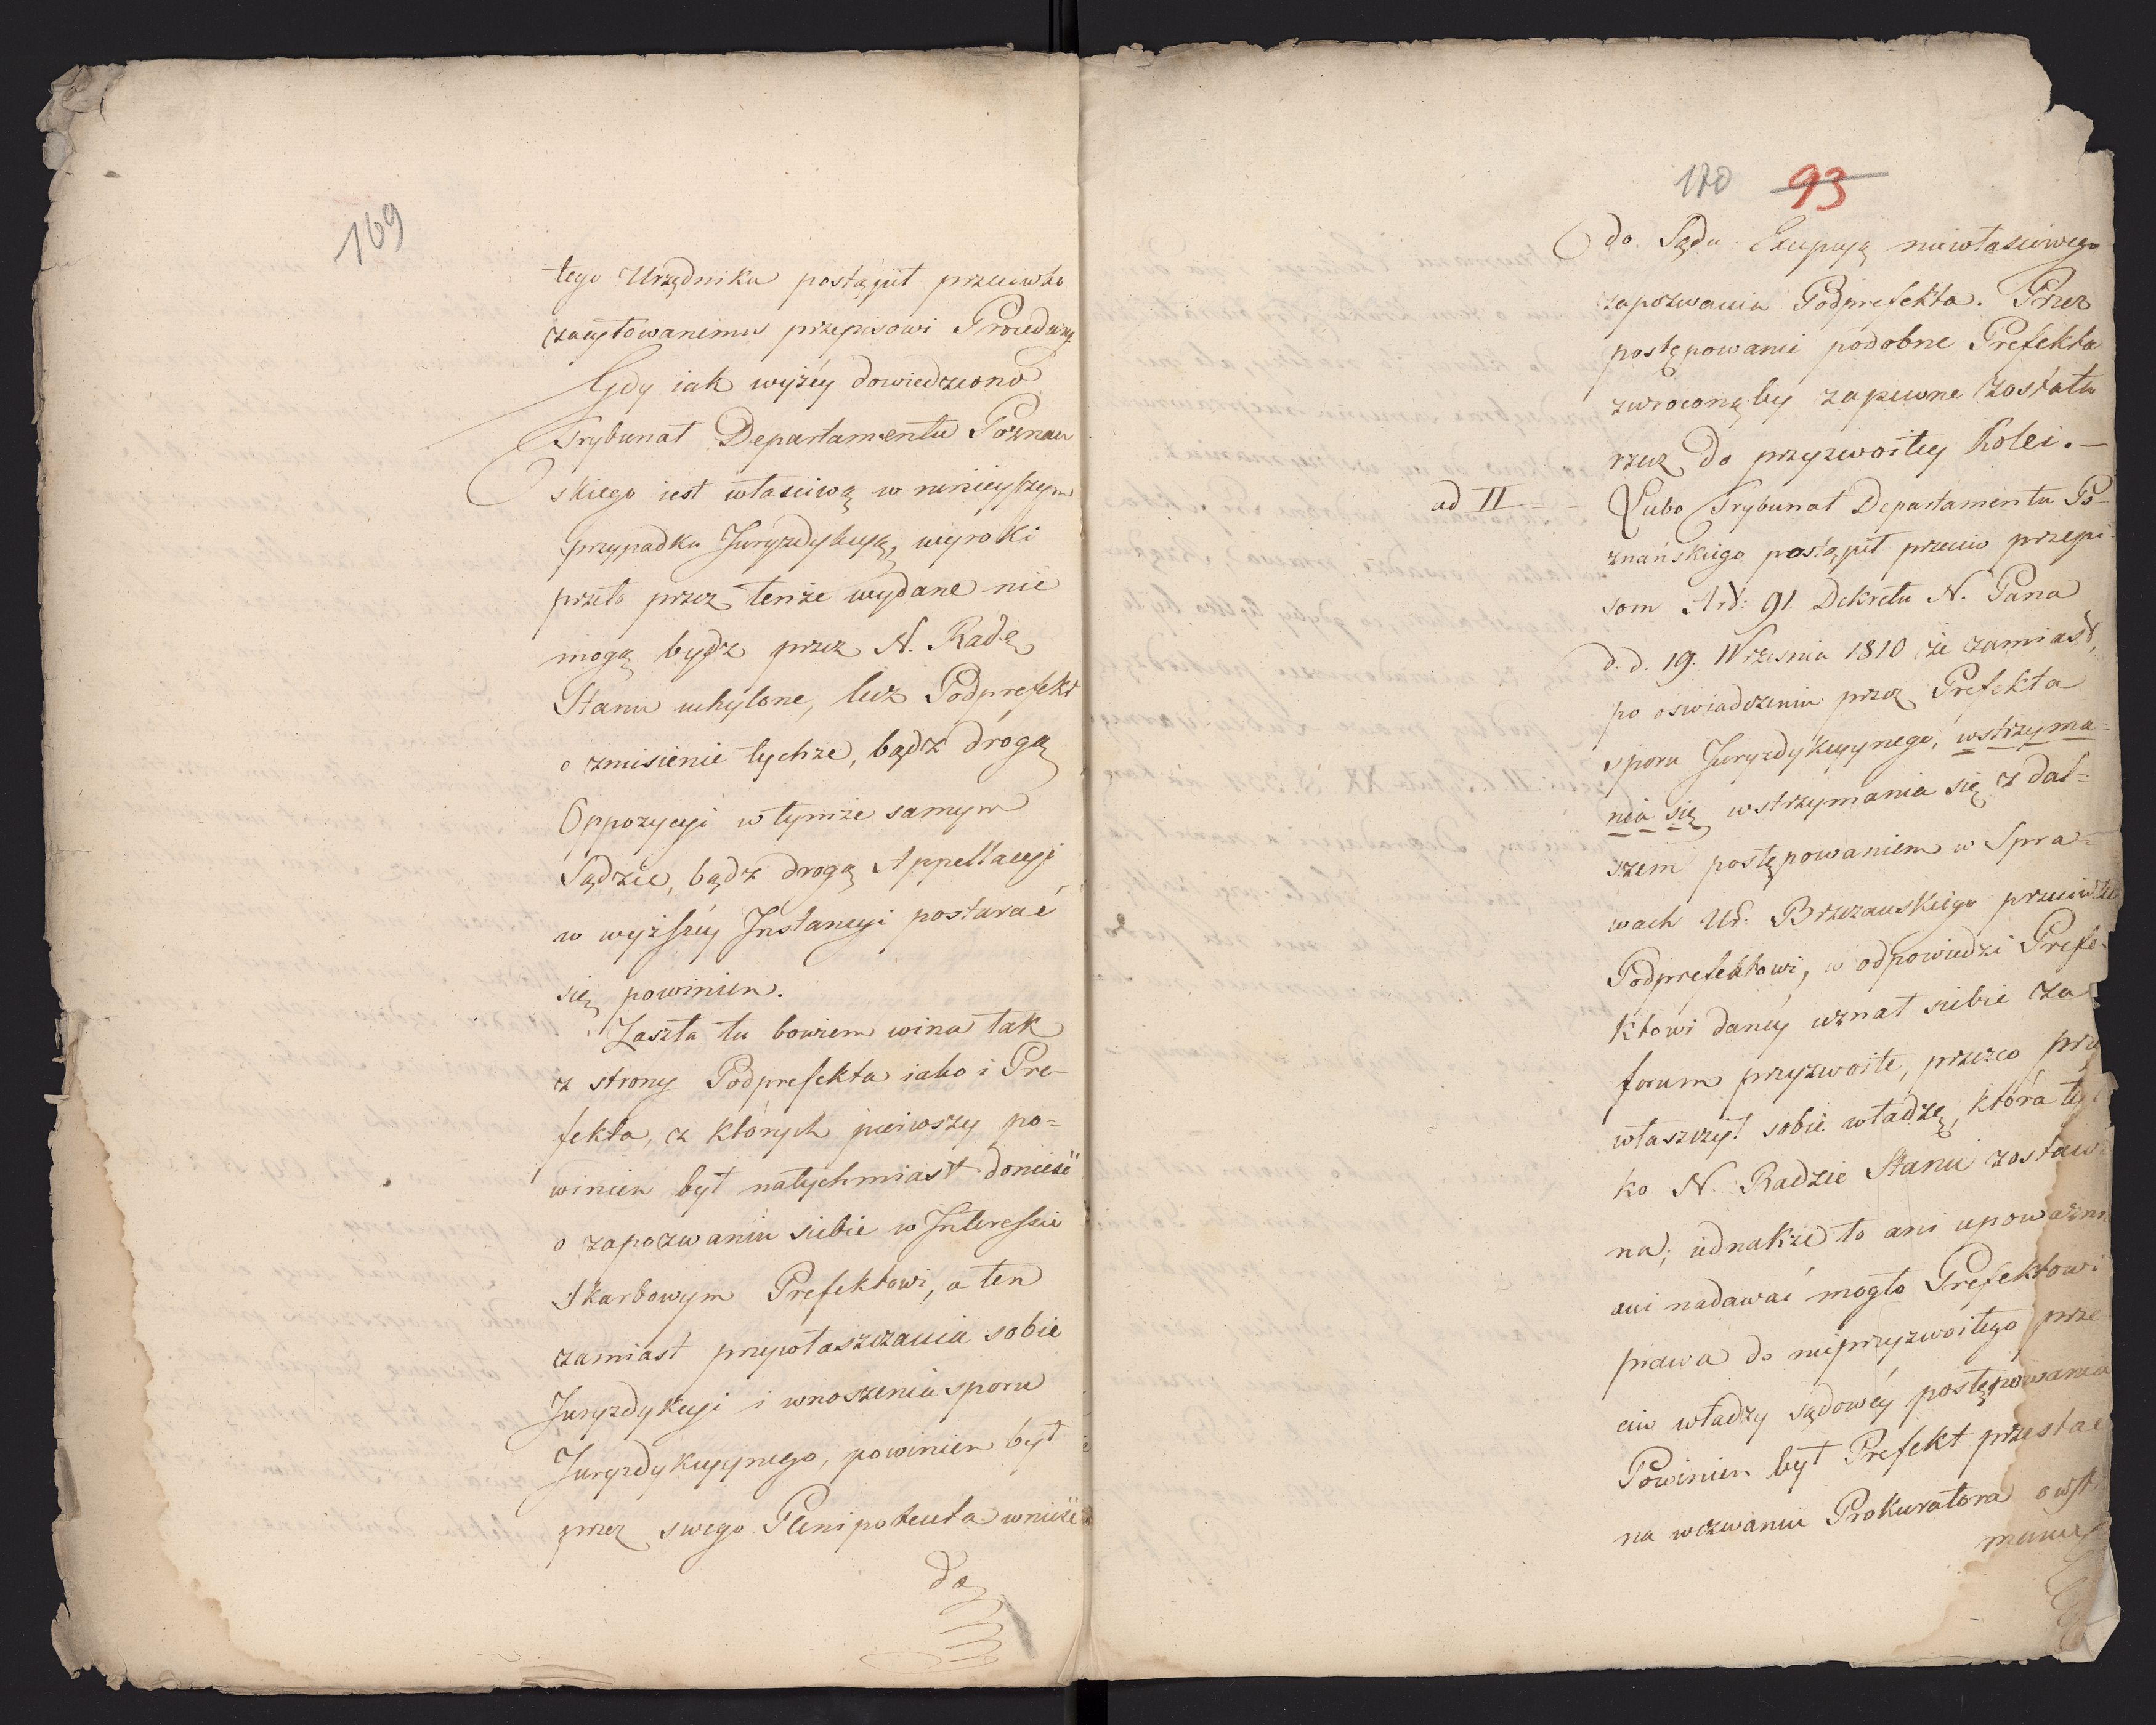 169
tego Urzędnika postąpił przeciwko
zacytowanemu przepisowi Procedury
Gdy iak wyżéy dowiedziono
Trybunał Departamentu Poznań
skiego iest właściwą w ninieyszym
przypadku Juryzdykcyą, wyroki
przeto przez tenże wydane nie
mogą bydź przez N. Radę
Stanu uchylone, lecz Podprefekt
o zniesienie tychże, bądź drogą
Oppozycyi w tymże samym
Sądzie, bądź drogą Appellacyi
w wyższéy Instancyi postarać
się powinien.
Zaszła tu bowiem wina tak
z strony Podprefekta iako i Pre-
fekta, z których pierwszy po=
winien był natychmiast donieść
o zapozwaniu siebie w Interessie
Skarbowym Prefektowi, a ten
zamiast przywłaszczania sobie
Juryzdykcyi i wnoszenia sporu
Juryzdykcyynego, powinien był
przez swego Plenipotenta wnieść
do
170 93
do Sądu Excepcyą niewłaściwego
zapozwania Podprefekta. Przez
postępowanie podobne Prefekta
zwróconąby zapewne została
rzecz do przyzwoitey kolei. —
ad II - - Lubo Trybunał Departamentu Po-
znańskiego postąpił przeciw przepi-
som Art: 91. Dekretu N. Pana
d. d. 19. Września 1810 że zamiast,
po oświadczeniu przez Prefekta
sporu Juryzdykcyynego, wstrzyma=
nia się wstrzymania się z dal=
szem postępowaniem w Spra=
wach Ur: Brzezanskiego przeciwko
Podprefektowi, w odpowiedzi Prefe-
ktowi danéy uznał siebie za
forum przyzwoite, przezco przy
właszczył sobie władzę, która tyl
ko N. Radzie Stanu zostawio
na; iednakże to ani upoważni
ani nadawać mogło Prefektowi
prawa do nieprzyzwoitego prze
ciw władzy sądowéy postępowania
Powinien był Prefekt przestać
na wezwaniu Prokuratora o wst